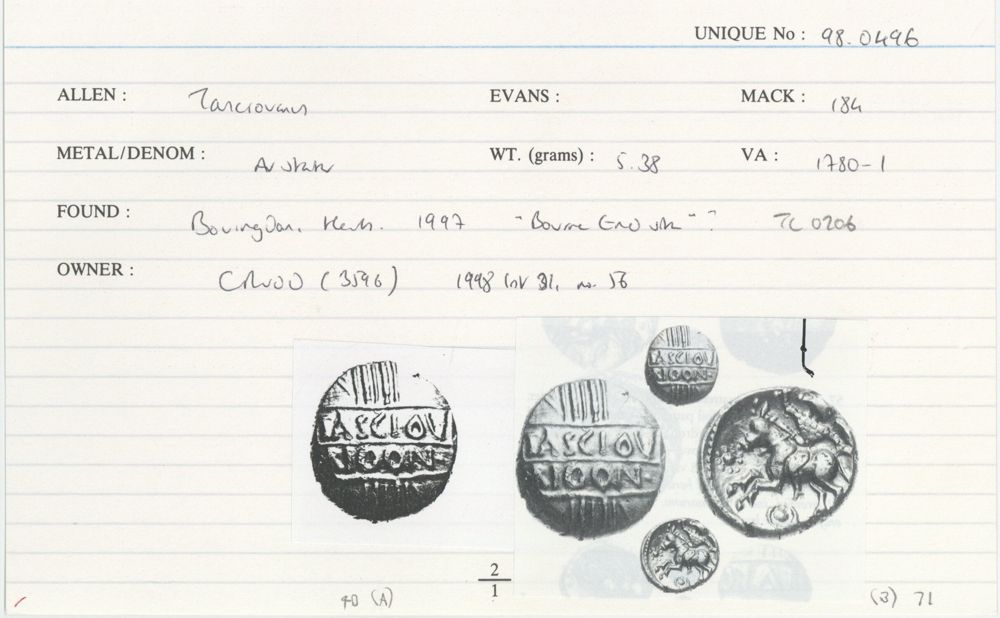 UNIQUE No : 98.0496
ALLEN : Tasciovanus EVANS : MACK : 184
METAL/DENOM : AV stater WT. (grams) : 5.38 VA : 1780-1
FOUND : Bovingdon, Herts. 1997 "Bourne End" ? TC 0206
OWNER : (3596) 1998 no. 56
ASCIOV
ICON
ASCIOV
ICON
ASCIOV
ICON
2
1
40 (A)
(B) 71